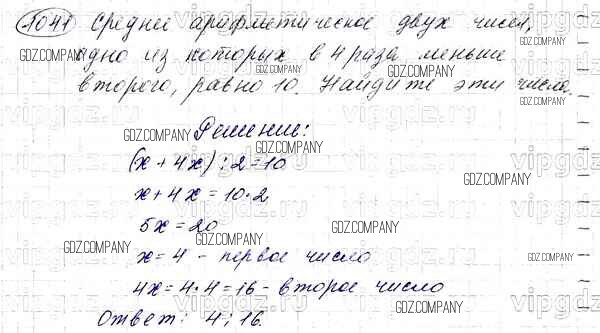 1041 Среднее арифметическое двух чисел,
одно из которых в 4 раза меньше
второго, равно 10. Найдите эти числа.
Решение:
(x + 4x) : 2 = 10
x + 4x = 10·2
5x = 20
x = 4 - первое число
4x = 4·4 = 16 - второе число
Ответ: 4; 16.
GDZ.COMPANY
GDZ.COMPANY
GDZ.COMPANY
GDZ.COMPANY
GDZ.COMPANY
GDZ.COMPANY
GDZ.COMPANY
GDZ.COMPANY
GDZ.COMPANY
GDZ.COMPANY
GDZ.COMPANY
GDZ.COMPANY
vipgdz.ru
vipgdz.ru
vipgdz.ru
vipgdz.ru